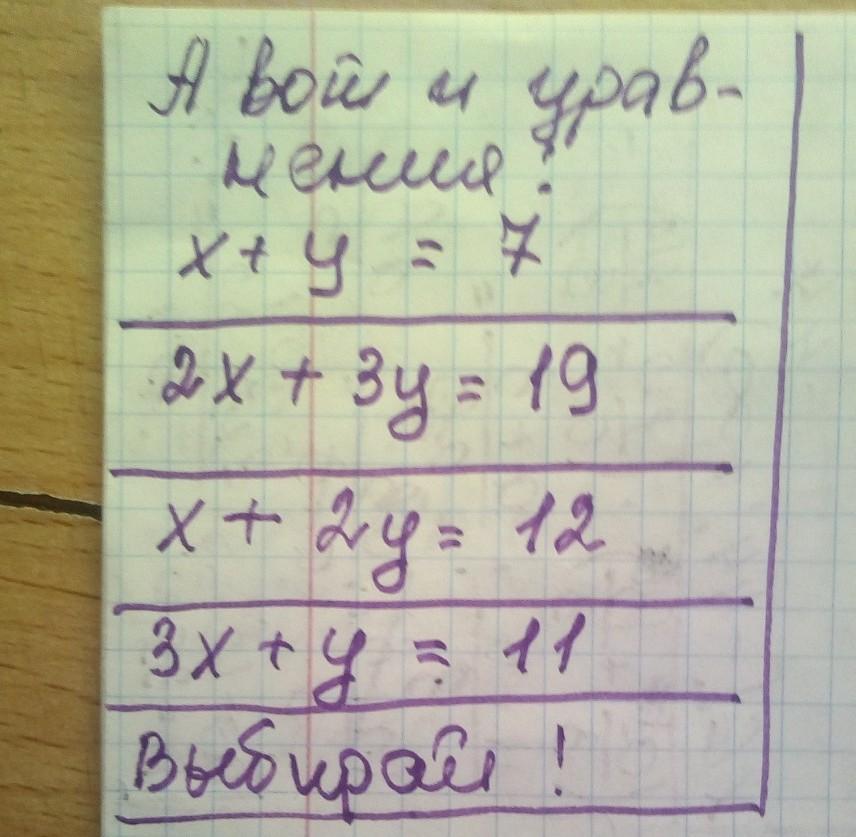 А вот и урав-
нения!
x + y = 7
2x + 3y = 19
x + 2y = 12
3x + y = 11
Выбирай!